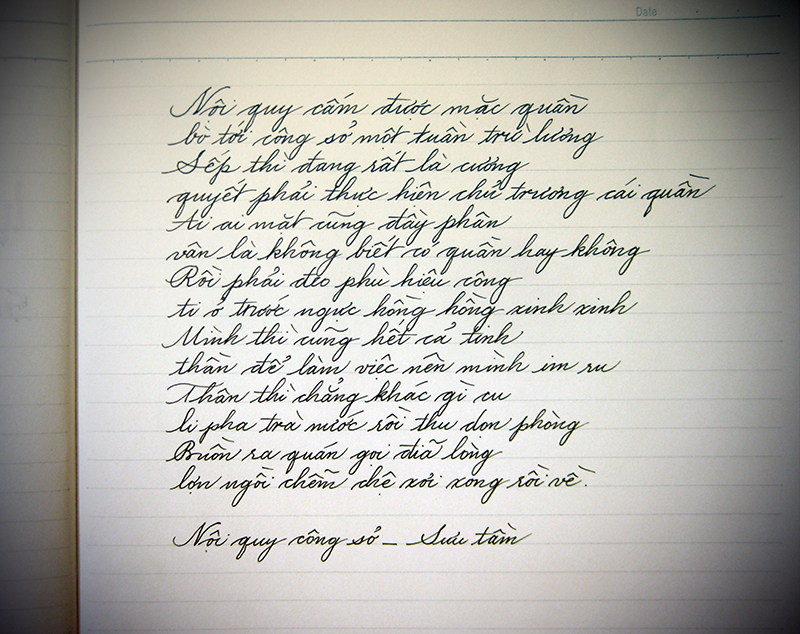 Date
Nội quy cấm được mặc quần
bò tới công sở một tuần trừ lương
Sếp thì đang rất là cương
quyết phải thực hiện chủ trương cái quần
Ai ai mặt cũng đầy phân
vân là không biết có quần hay không
Rồi phải đeo phù hiệu công
ti ở trước ngực hồng hồng xinh xinh
Mình thì cũng hết cả tinh
thần để làm việc nên mình im ru
Thân thì chẳng khác gì cu
li pha trà nước rồi thu dọn phòng
Buồn ra quán gọi đĩa lòng
lợn ngồi chễm chệ xơi xong rồi về.
Nội quy công sở - Sưu tầm